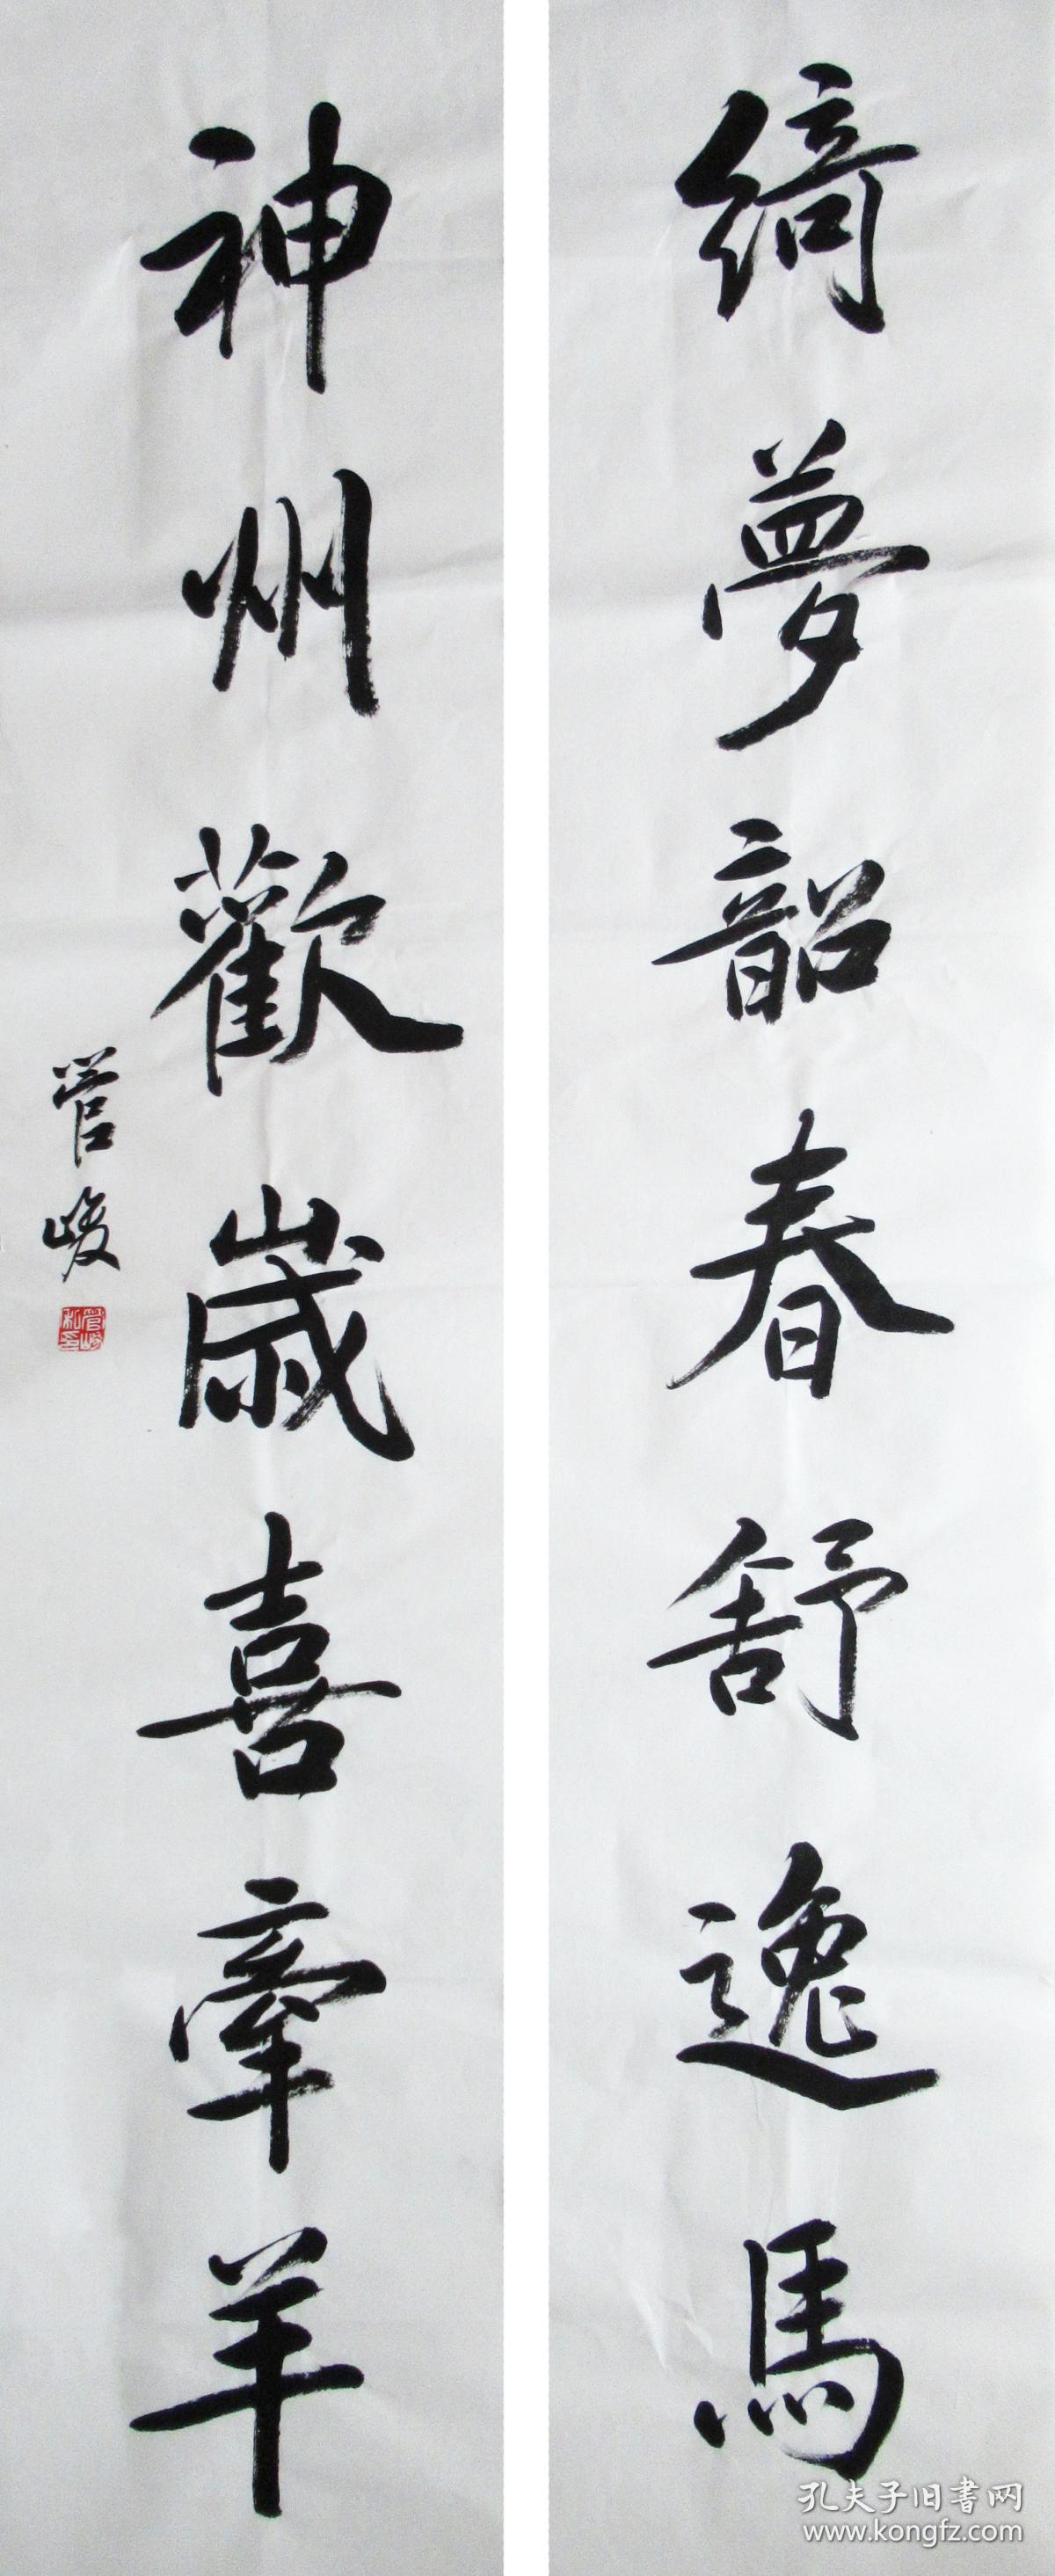 綺夢韶春舒逸馬
神州歡歲喜牽羊
管峻
管峻私印
孔夫子旧書网
www.kongfz.com